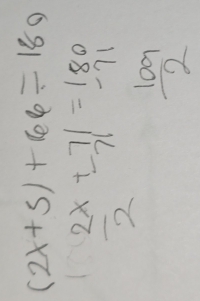 (2x+5)+66=180
2x+71=180
2 -71 -71
109
2